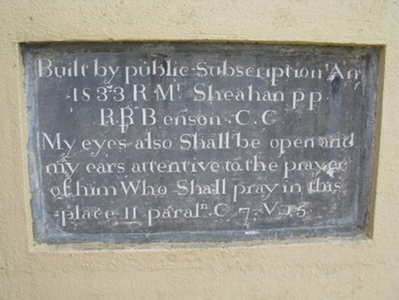 Built by public Subscription An
1833 R Mr Sheahan pp
R.R Benson . C . C
My eyes also Shall be open and
my ears attentive to the prayer
of him Who Shall pray in this
place II paraln. C 7. V 15